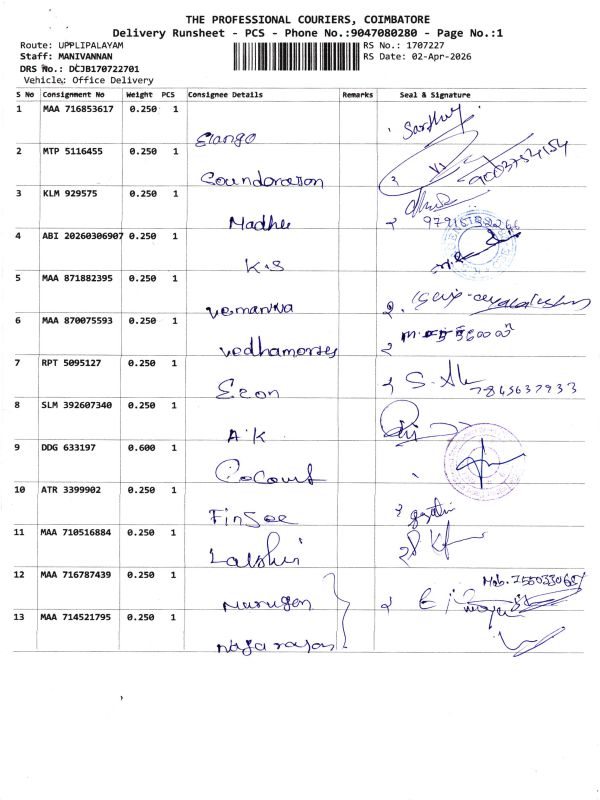 THE PROFESSIONAL COURIERS, COIMBATORE
Delivery Runsheet - PCS - Phone No.:9047080280 - Page No.:1
Route: UPPLIPALAYAM RS No.: 1707227
Staff: MANIVANNAN RS Date: 02-Apr-2026
DRS No.: DCJB170722701
Vehicle: Office Delivery
S No Consignment No Weight PCS Consignee Details Remarks Seal & Signature
1 MAA 716853617 0.250 1
Elango
2 MTP 5116455 0.250 1
Soundoration 9003754154
3 KLM 929575 0.250 1
Madhu
4 ABI 20260306907 0.250 1
K.S
5 MAA 871882395 0.250 1
6 MAA 870075593 0.250 1
7 RPT 5095127 0.250 1
Econ 7845637933
8 SLM 392607340 0.250 1
A.K
9 DDG 633197 0.600 1
10 ATR 3399902 0.250 1
FinSee
11 MAA 710516884 0.250 1
12 MAA 716787439 0.250 1
Murugan
13 MAA 714521795 0.250 1
Nagarajan